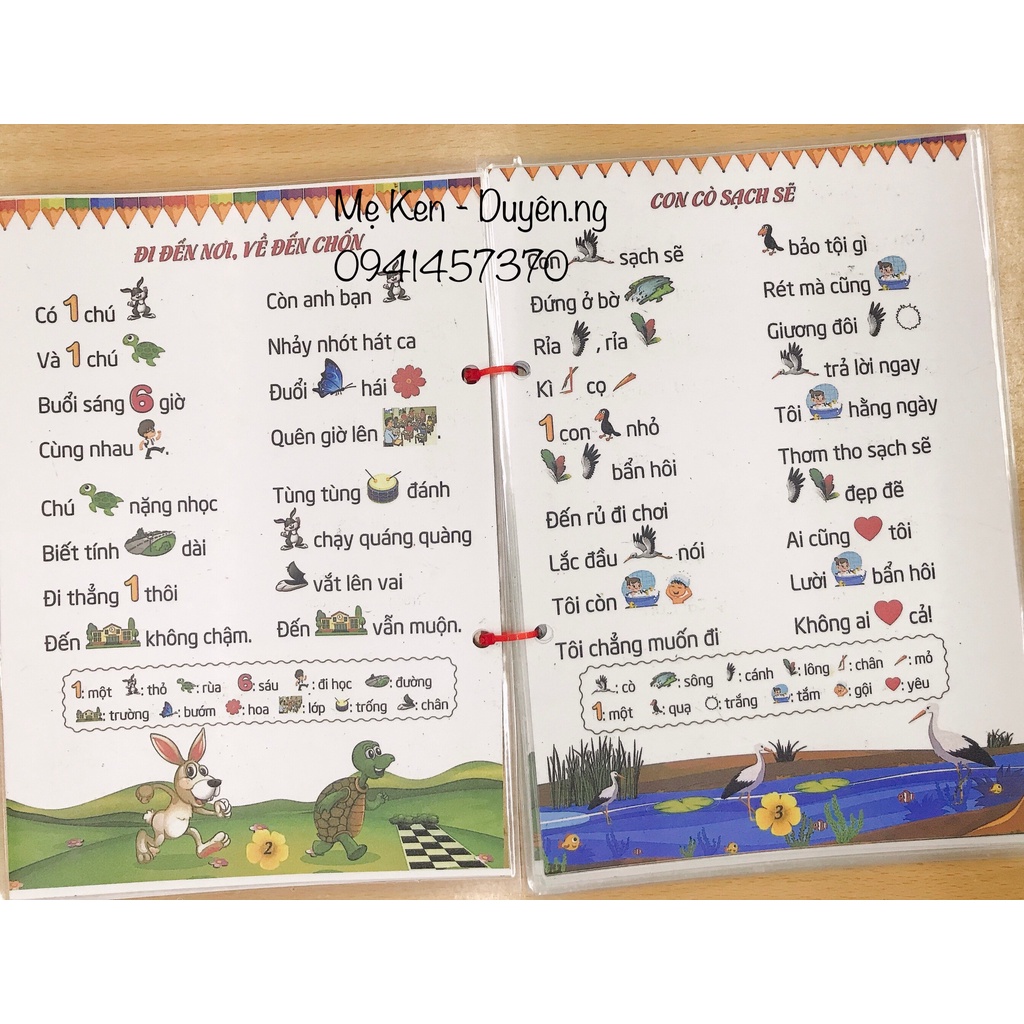 Mẹ Ken - Duyên.ng
0941457370
ĐI ĐẾN NƠI, VỀ ĐẾN CHỐN
Có 1 chú
Và 1 chú
Buổi sáng 6 giờ
Cùng nhau .
Chú nặng nhọc
Biết tính dài
Đi thẳng 1 thôi
Đến không chậm.
Còn anh bạn
Nhảy nhót hát ca
Đuổi hái
Quên giờ lên .
Tùng tùng đánh
chạy quáng quàng
vắt lên vai
Đến vẫn muộn.
1: một : thỏ : rùa 6: sáu : đi học : đường
: trường : bướm : hoa : lớp : trống : chân
2
CON CÒ SẠCH SẼ
Con sạch sẽ
Đứng ở bờ
Rỉa , rỉa
Kì cọ
1 con nhỏ
bẩn hôi
Đến rủ đi chơi
Lắc đầu nói
Tôi còn
Tôi chẳng muốn đi
bảo tội gì
Rét mà cũng
Giương đôi
trả lời ngay
Tôi hằng ngày
Thơm tho sạch sẽ
đẹp đẽ
Ai cũng tôi
Lười bẩn hôi
Không ai cả!
: cò : sông : cánh : lông : chân : mỏ
1: một : quạ : trắng : tắm : gội : yêu
3